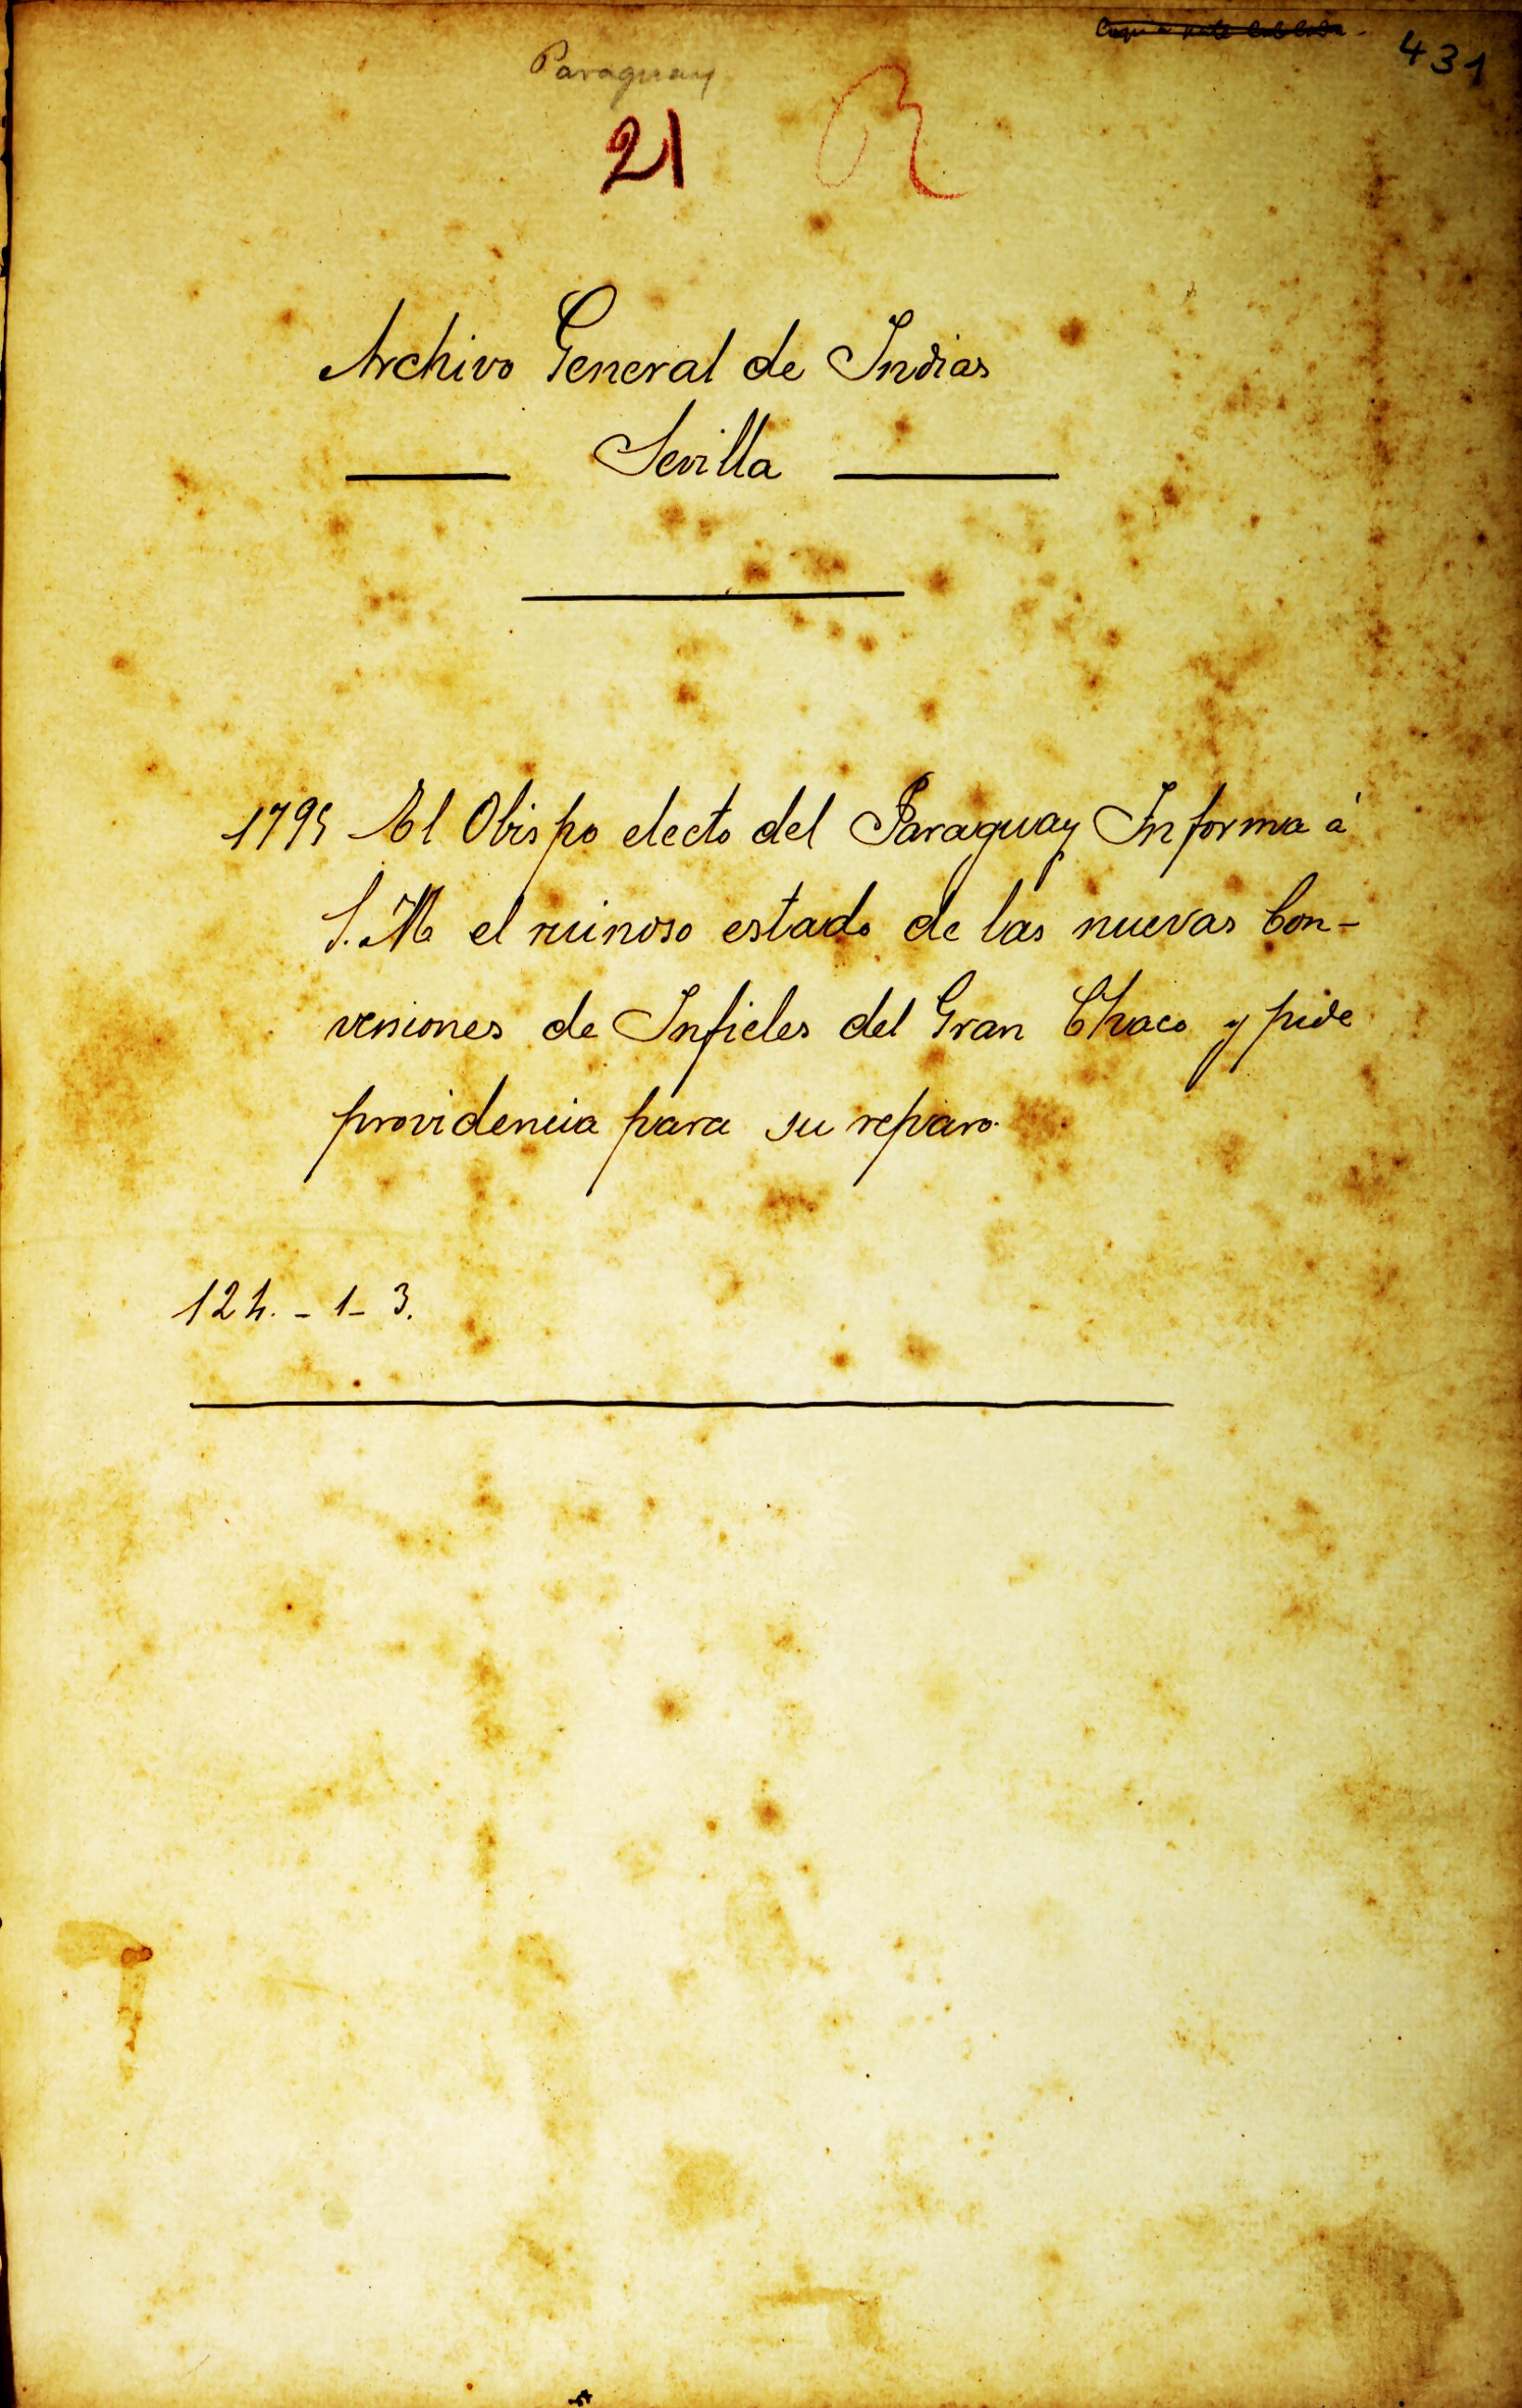 431
Paraguay
21 R
Archivo General de Indias
Sevilla
1795 El Obispo electo del Paraguay Informa á
S. M el ruinoso estado de las nuevas Con-
versiones de Infieles del Gran Chaco y pide
providencia para su reparo.
124. - 1 - 3.